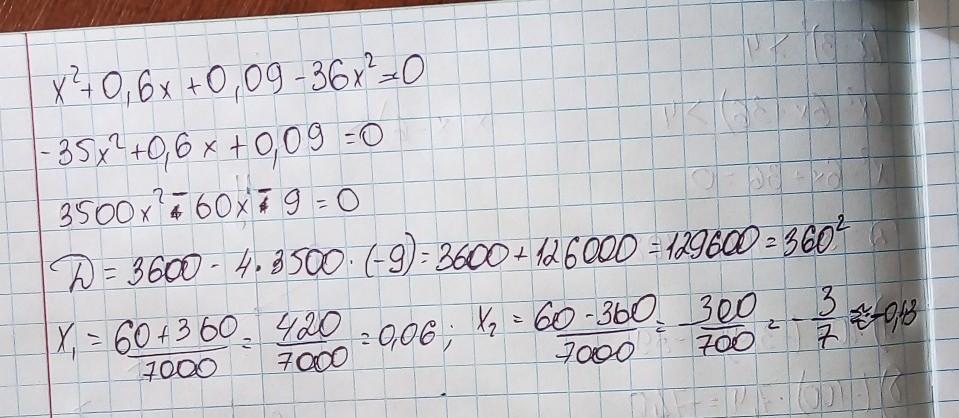 x²+0,6x+0,09-36x²=0
-35x²+0,6x+0,09=0
3500x²-60x-9=0
D=3600-4·3500·(-9)=3600+126000=129600=360²
x₁=(60+360)/7000=420/7000=0,06; x₂=(60-360)/7000=-300/700=-3/7≈-0,43